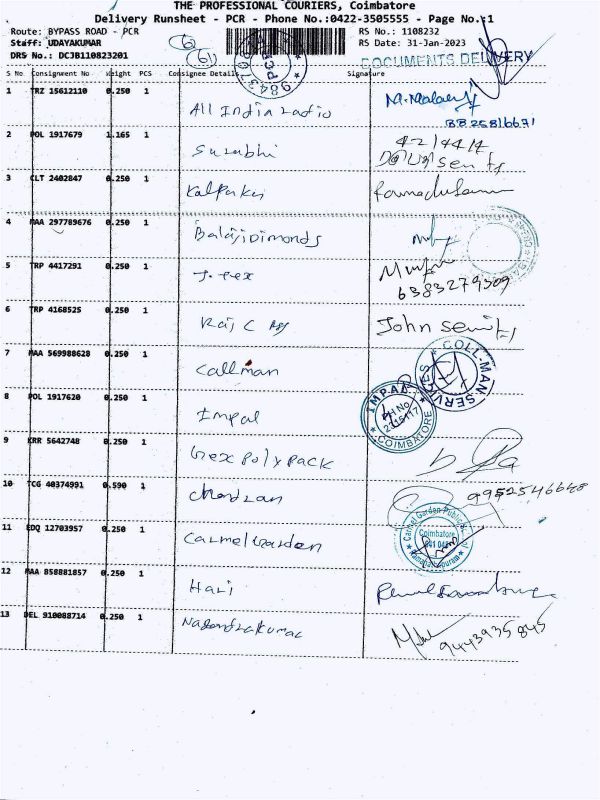 THE PROFESSIONAL COURIERS, Coimbatore
Delivery Runsheet - PCR - Phone No.:0422-3505555 - Page No.:1
Route: BYPASS ROAD - PCR
RS No.: 1108232
Staff: UDAYAKUMAR
RS Date: 31-Jan-2023
DRS No.: DCJB110823201
DOCUMENTS DELIVERY
S No Consignment No Weight PCS Consignee Details Signature
1 TRZ 15612110 0.250 1 All India radio
2 POL 1917679 1.165 1 Surabhi
3 CLT 2402847 0.250 1 Kalpaka
4 MAA 297789676 0.250 1 Balaji Dimonds
5 TRP 4417291 0.250 1 J. Tex
6383279309
6 TRP 4168525 0.250 1 Raj C John
7 MAA 569988628 0.250 1 Callman
COLL-MAN SERVICES
8 POL 1917620 0.250 1 Impal
IMPAL
COIMBATORE
9 KRR 5642748 0.250 1 Grex poly pack
9952546648
10 TCG 40374991 0.590 1 Chandran
11 EDQ 12703957 0.250 1 Carmel Garden
Carmel Garden Public
Coimbatore
12 MAA 858881857 0.250 1 Hari
13 DEL 910088714 0.250 1 Nagendrakumar
9443935845